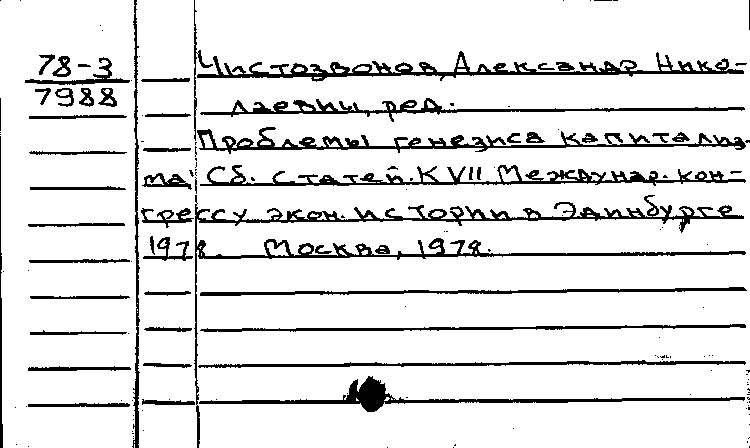 78-3
7988
Чистозвонов, Александр Нико-
лаевич, ред.
Проблемы генезиса капитализ-
ма. Сб. статей. К VII Междунар. кон-
грессу экон. истории в Эдинбурге
1978. Москва, 1978.